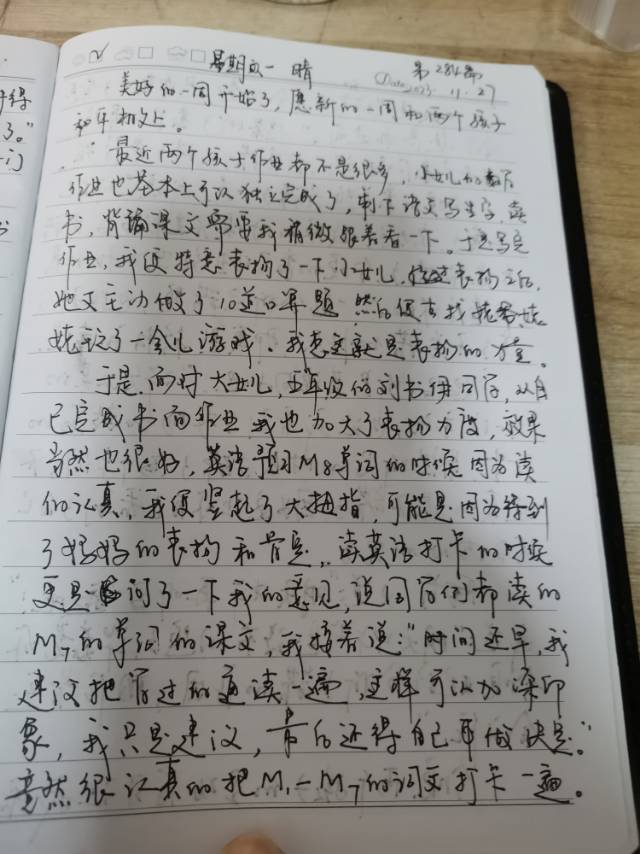 星期一 晴 第284篇
Date 2023. 11. 27
美好的一周开始了,愿新的一周和两个孩子
和平相处。
最近两个孩子作业都不是很多,小女儿的数学
作业也基本上可以独立完成了,剩下语文写生字,读
书,背诵课文需要我稍微跟着看一下。于是写完
作业,我便特意表扬了一下小女儿,表扬之后,
她又主动做了10道口算题 然后便去找姥爷姥
姥玩了一会儿游戏。我想这就是表扬的力量。
于是,面对大女儿,五年级的刘书伊同学,从自
己完成书面作业 我也加大了表扬力度,效果
当然也很好,英语预习M8单词的时候因为读
的认真,我便竖起了大拇指,可能是因为得到
了妈妈的表扬和肯定,读英语打卡的时候
更是问了一下我的意见,说同学们都读的
M7的单词的课文,我接着说:"时间还早,我
建议把学过的通读一遍,这样可以加深印
象,我只是建议,最后还得自己再做决定。"
竟然很认真的把M1-M7的词文打卡一遍。
得
了。"
门
书